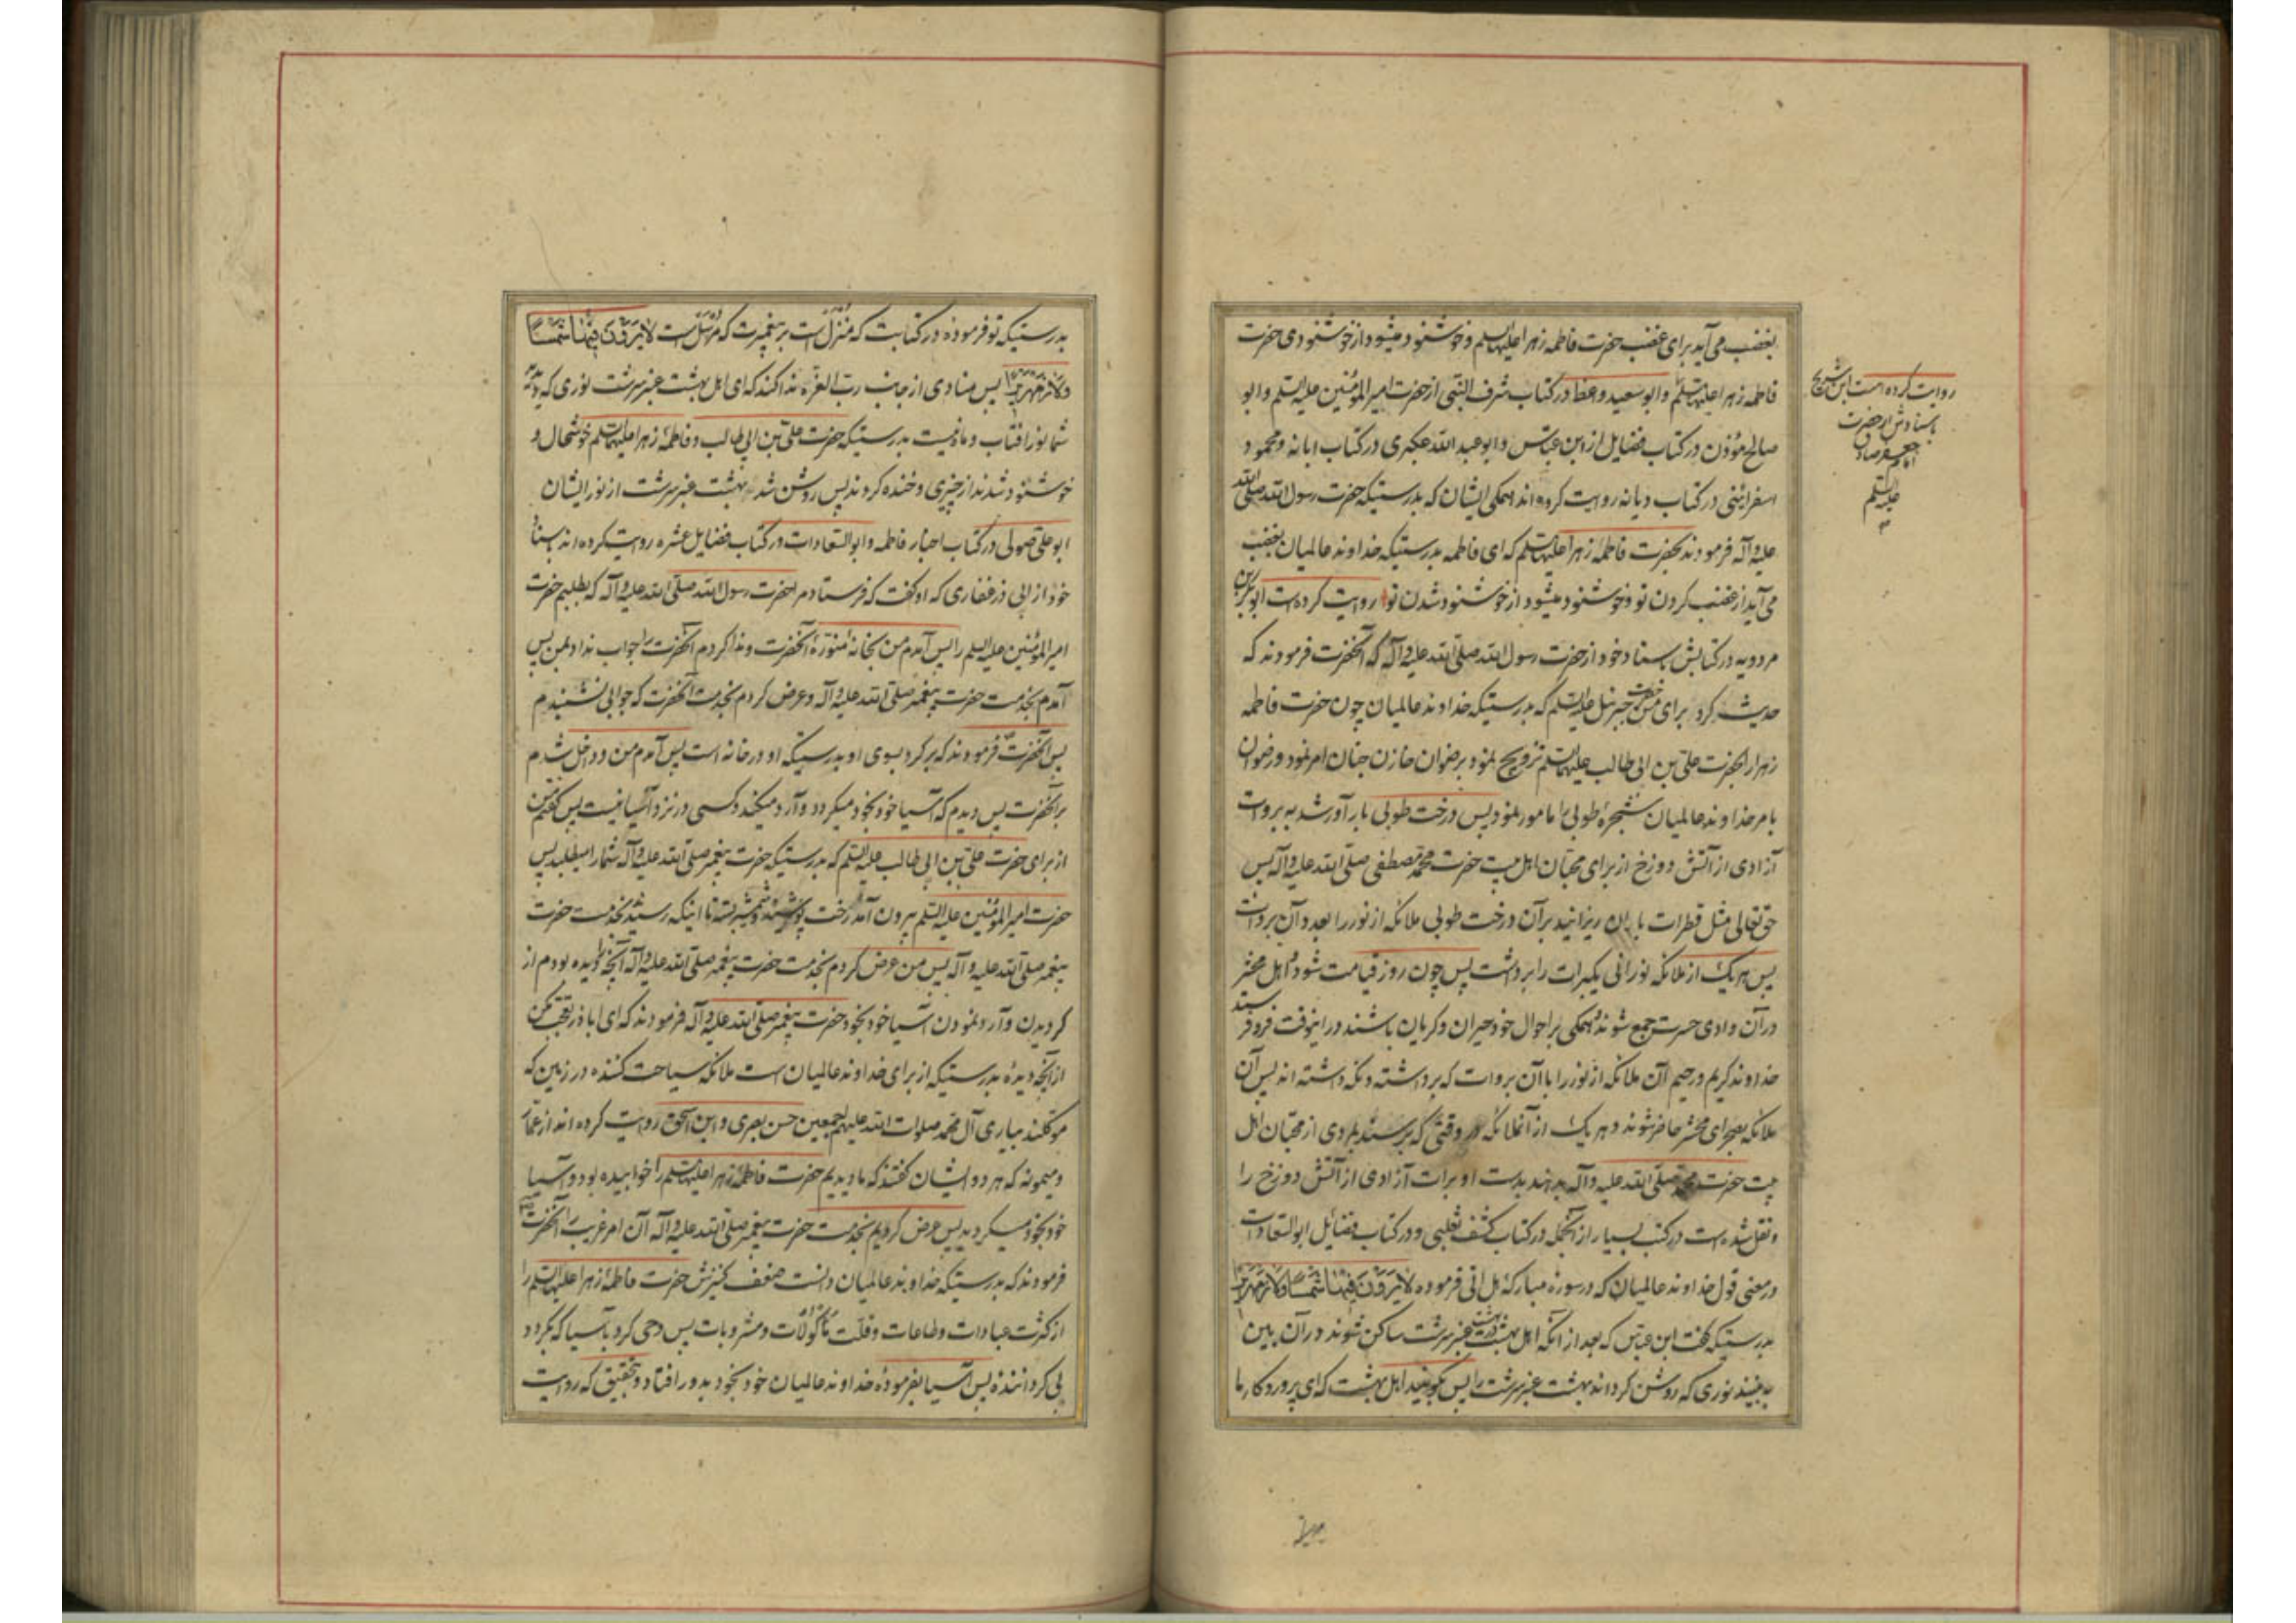 بغضب می آید برای غضب حضرت فاطمه زهرا علیها السلم و خوشنود میشود از خوشنودی حضرت
فاطمه زهرا علیها السلم و ابو سعید واعظ در کتاب شرف النبی از حضرت امیر المؤمنین علیه السلم و ابو
صالح مؤذن در کتاب فضایل از ابن عباس و ابو عبد الله عکبری در کتاب ابانه و محمود
اسفراینی در کتاب دیانه روایت کرده اند همکی ایشان که بدرستیکه حضرت رسول الله صلی الله
علیه و آله فرمودند بحضرت فاطمه زهرا علیها السلم که ای فاطمه بدرستیکه خداوند عالمیان بغضب
می آید از غضب کردن تو و خوشنود میشود از خوشنود شدن تو روایت کرده است ابو بکر بن
مردویه در کتابش باسناد خود از حضرت رسول الله صلی الله علیه و آله که آنحضرت فرمودند که
حدیث کرد برای من حضرت جبرئیل علیه السلم که بدرستیکه خداوند عالمیان چون حضرت فاطمه
زهرا را بحضرت علی بن ابی طالب علیهما السلم تزویج نمود برضوان خازن جنان امر نمود و رضوان
بامر خداوند عالمیان شجرهٔ طوبی را مامور نمود پس درخت طوبی بار آور شد به بروات
آزادی از آتش دوزخ از برای محبان اهل بیت حضرت محمد مصطفی صلی الله علیه و آله پس
حق تعالی مثل قطرات باران ریزانید بر آن درخت طوبی ملائکه از نور را بعدد آن بروات
پس هر یک از ملائکه نورانی یک برات را برداشت پس چون روز قیامت شود و اهل محشر
در آن وادی حسرت جمع شوند و همکی بر احوال خود حیران و کریان باشند در اینوقت فرو فرستد
خداوند کریم و رحیم آن ملائکه از نور را با آن بروات که برداشته و نکه داشته اند پس آن
ملائکه بصحرای محشر حاضر شوند و هر یک از آنملائکه در وقتی که برسند بمردی از محبان اهل
بیت حضرت محمد صلی الله علیه و آله بدهند بدست او برات آزادی از آتش دوزخ را
و نقل شده است در کتب بسیار از آنجمله در کتاب کشف ثعلبی و در کتاب فضائل ابو السعادات
در معنی قول خداوند عالمیان که در سورهٔ مبارکهٔ هل اتی فرموده لا یرون فیها شمسا ولا زمهریرا
بدرستیکه کفت ابن عباس که بعد از آنکه اهل بهشت در بهشت عنبر سرشت ساکن شوند در آن بین
به بینند نوری که روشن کرداند بهشت عنبر سرشت را پس بکویند اهل بهشت که ای پروردکار ما
روایت کرده است ابن شریح
باسنادش از حضرت
امام جعفر صادق
علیه السلم
بدرستیکه تو فرموده در کتابت که منزل است بر پیغمبرت که مرسل است لا یرون فیها شمسا
ولا زمهریرا پس منادی از جانب رب العزه ندا کند که ای اهل بهشت عنبر سرشت نوری که دیدید
شما نور افتاب و ماه نیست بدرستیکه حضرت علی بن ابی طالب و فاطمهٔ زهرا علیهما السلم خوشحال و
خوشنود شدند از چیزی و خنده کردند پس روشن شد بهشت عنبر سرشت از نور ایشان
ابو علی صولی در کتاب اخبار فاطمه و ابو السعادات در کتاب فضایل عشره روایت کرده اند باسناد
خود از ابی ذر غفاری که او کفت که فرستاد مرا حضرت رسول الله صلی الله علیه و آله که بطلبم حضرت
امیر المؤمنین علیه السلم را پس آمدم من بخانهٔ منورهٔ آنحضرت و ندا کردم آنحضرت را جواب نداد بمن پس
آمدم بخدمت حضرت پیغمبر صلی الله علیه و آله و عرض کردم بخدمت آنحضرت که جوابی نشنیدم
پس آنحضرت فرمودند که برکرد بسوی او بدرستیکه او در خانه است پس آمدم من و داخل شدم
بر آنحضرت پس دیدم که آسیا خود بخود میکردد و آرد میکند و کسی در نزد آسیا نیست پس کفتم من
از برای حضرت علی بن ابی طالب علیه السلم که بدرستیکه حضرت پیغمبر صلی الله علیه و آله شما را میطلبد پس
حضرت امیر المؤمنین علیه السلم بیرون آمد رخت پوشیده و شمشیر بسته تا اینکه رسید بخدمت حضرت
پیغمبر صلی الله علیه و آله پس من عرض کردم بخدمت حضرت پیغمبر صلی الله علیه و آله آنچه را دیده بودم از
کردیدن و آرد نمودن آسیا خود بخود حضرت پیغمبر صلی الله علیه و آله فرمودند که ای اباذر تعجب مکن
از آنچه دیدهٔ بدرستیکه از برای خداوند عالمیان است ملائکه سیاحت کننده در زمین که
موکلند بیاری آل محمد صلوات الله علیهم اجمعین حسن بصری و ابن اسحق روایت کرده اند از عمار
و میمونه که هر دو ایشان کفتند که ما دیدیم حضرت فاطمهٔ زهرا علیها السلم را خوابیده بود و آسیا
خود بخود میکردید پس عرض کردیم بخدمت حضرت پیغمبر صلی الله علیه و آله آن امر غریب را آنحضرت
فرمودند که بدرستیکه خداوند عالمیان دانست ضعف کنیزش حضرت فاطمهٔ زهرا علیها السلم را
از کثرت عبادات و طاعات و قلت مأکولات و مشروبات پس وحی کرد بآسیا که بکردد
بی کرداننده پس آسیا بفرمودهٔ خداوند عالمیان خود بخود بدور افتاد و بتحقیق که روایت